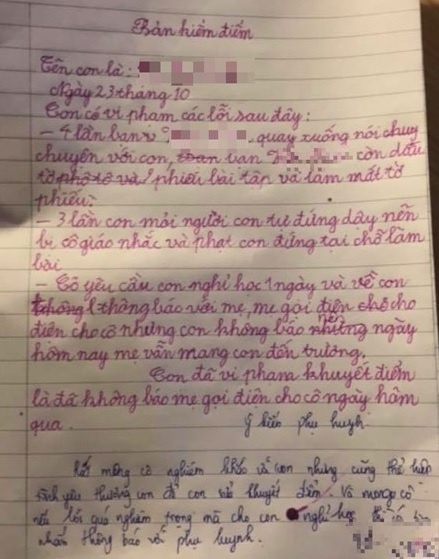 Bản kiểm điểm
Tên con là:
Ngày 23 tháng 10
Con có vi phạm các lỗi sau đây:
- 4 lần bạn quay xuống nói chuy
chuyên với con, toàn bạn còn dấu
tờ phô tô và phiếu bài tập và làm mất tờ
phiếu.
- 3 lần con mỏi người con tự đứng dậy nên
bị cô giáo nhắc và phạt con đứng tại chỗ làm
bài
- Cô yêu cầu con nghỉ học 1 ngày và về con
không thông báo với mẹ, mẹ gọi điện cho cho
điên cho cô nhưng con không báo nhưng ngày
hôm nay mẹ vẫn mang con đến trường.
Con đã vi phạm khuyết điểm
là đã không báo mẹ gọi điện cho cô ngày hôm
qua.
Ý kiến phụ huynh.
mong cô nghiêm khắc với con nhưng cũng thể hiện
tình yêu thương con để con khuyết điểm. Và mong cô
nếu lỗi quá nghiêm trọng mà cho con nghỉ học
nhắn thông báo với phụ huynh.